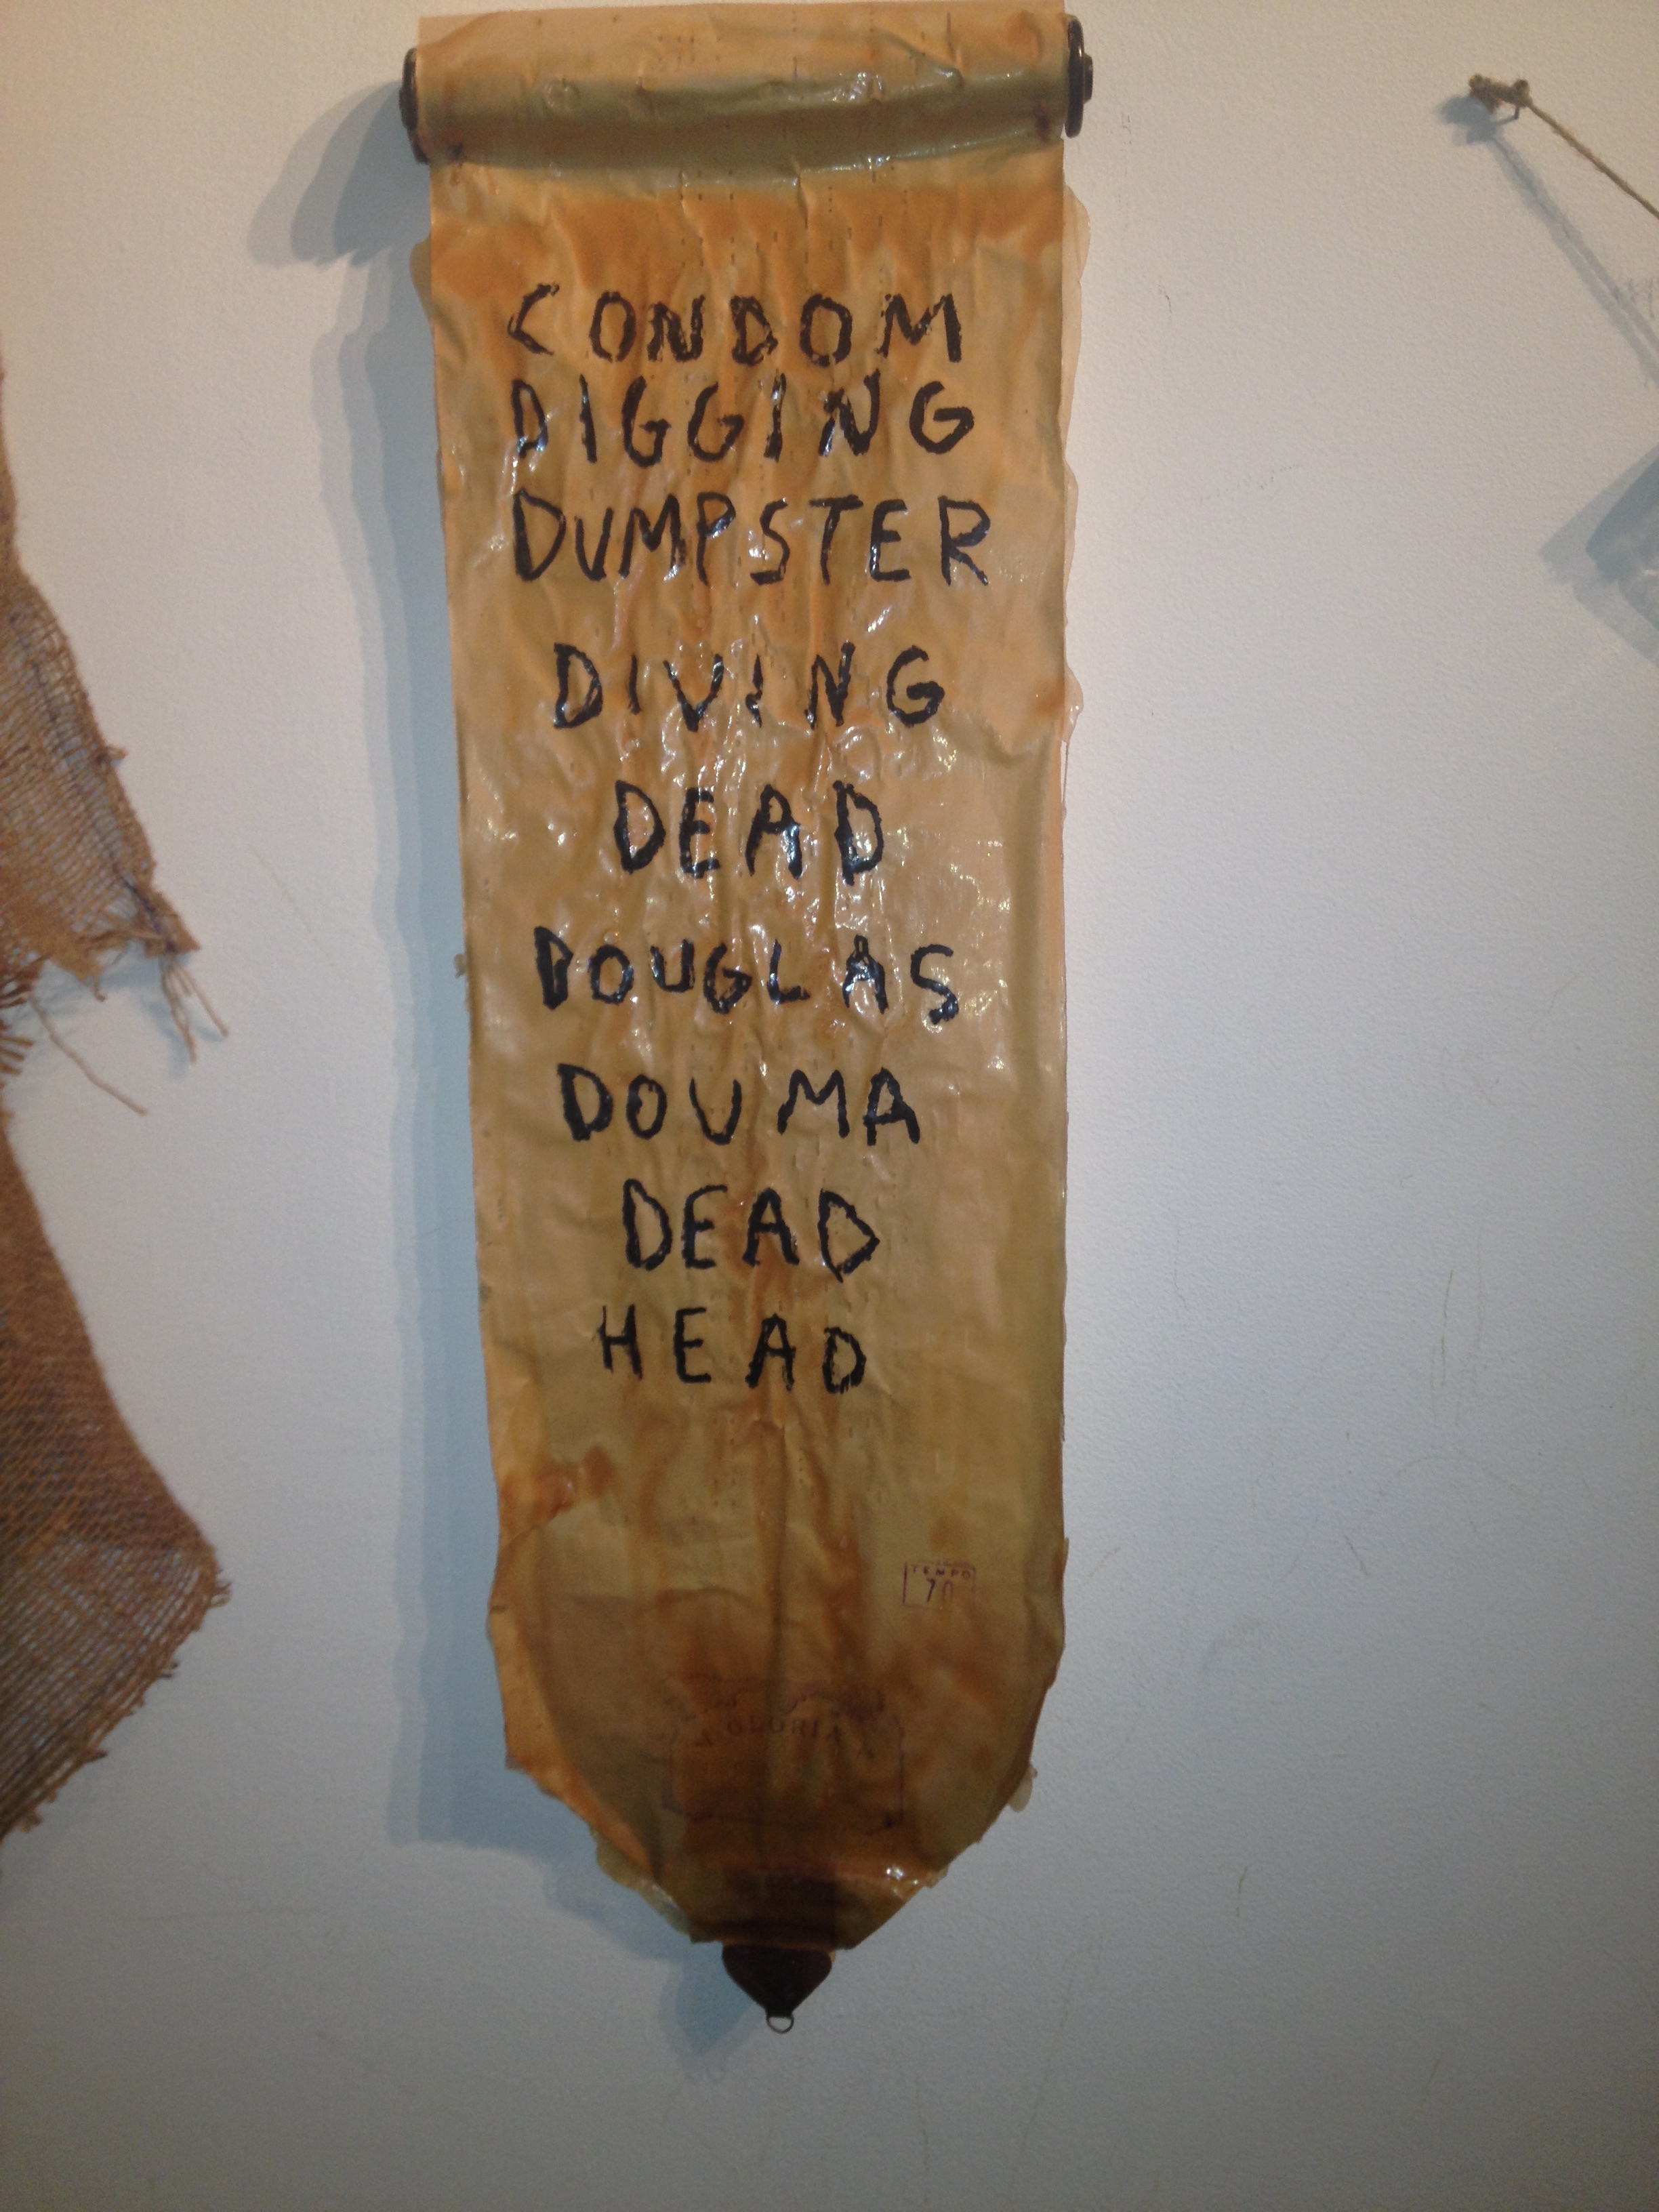 CONDOM
DIGGING
DUMPSTER
DIVING
DEAD
DOUGLAS
DOUMA
DEAD
HEAD
TEMPO
70